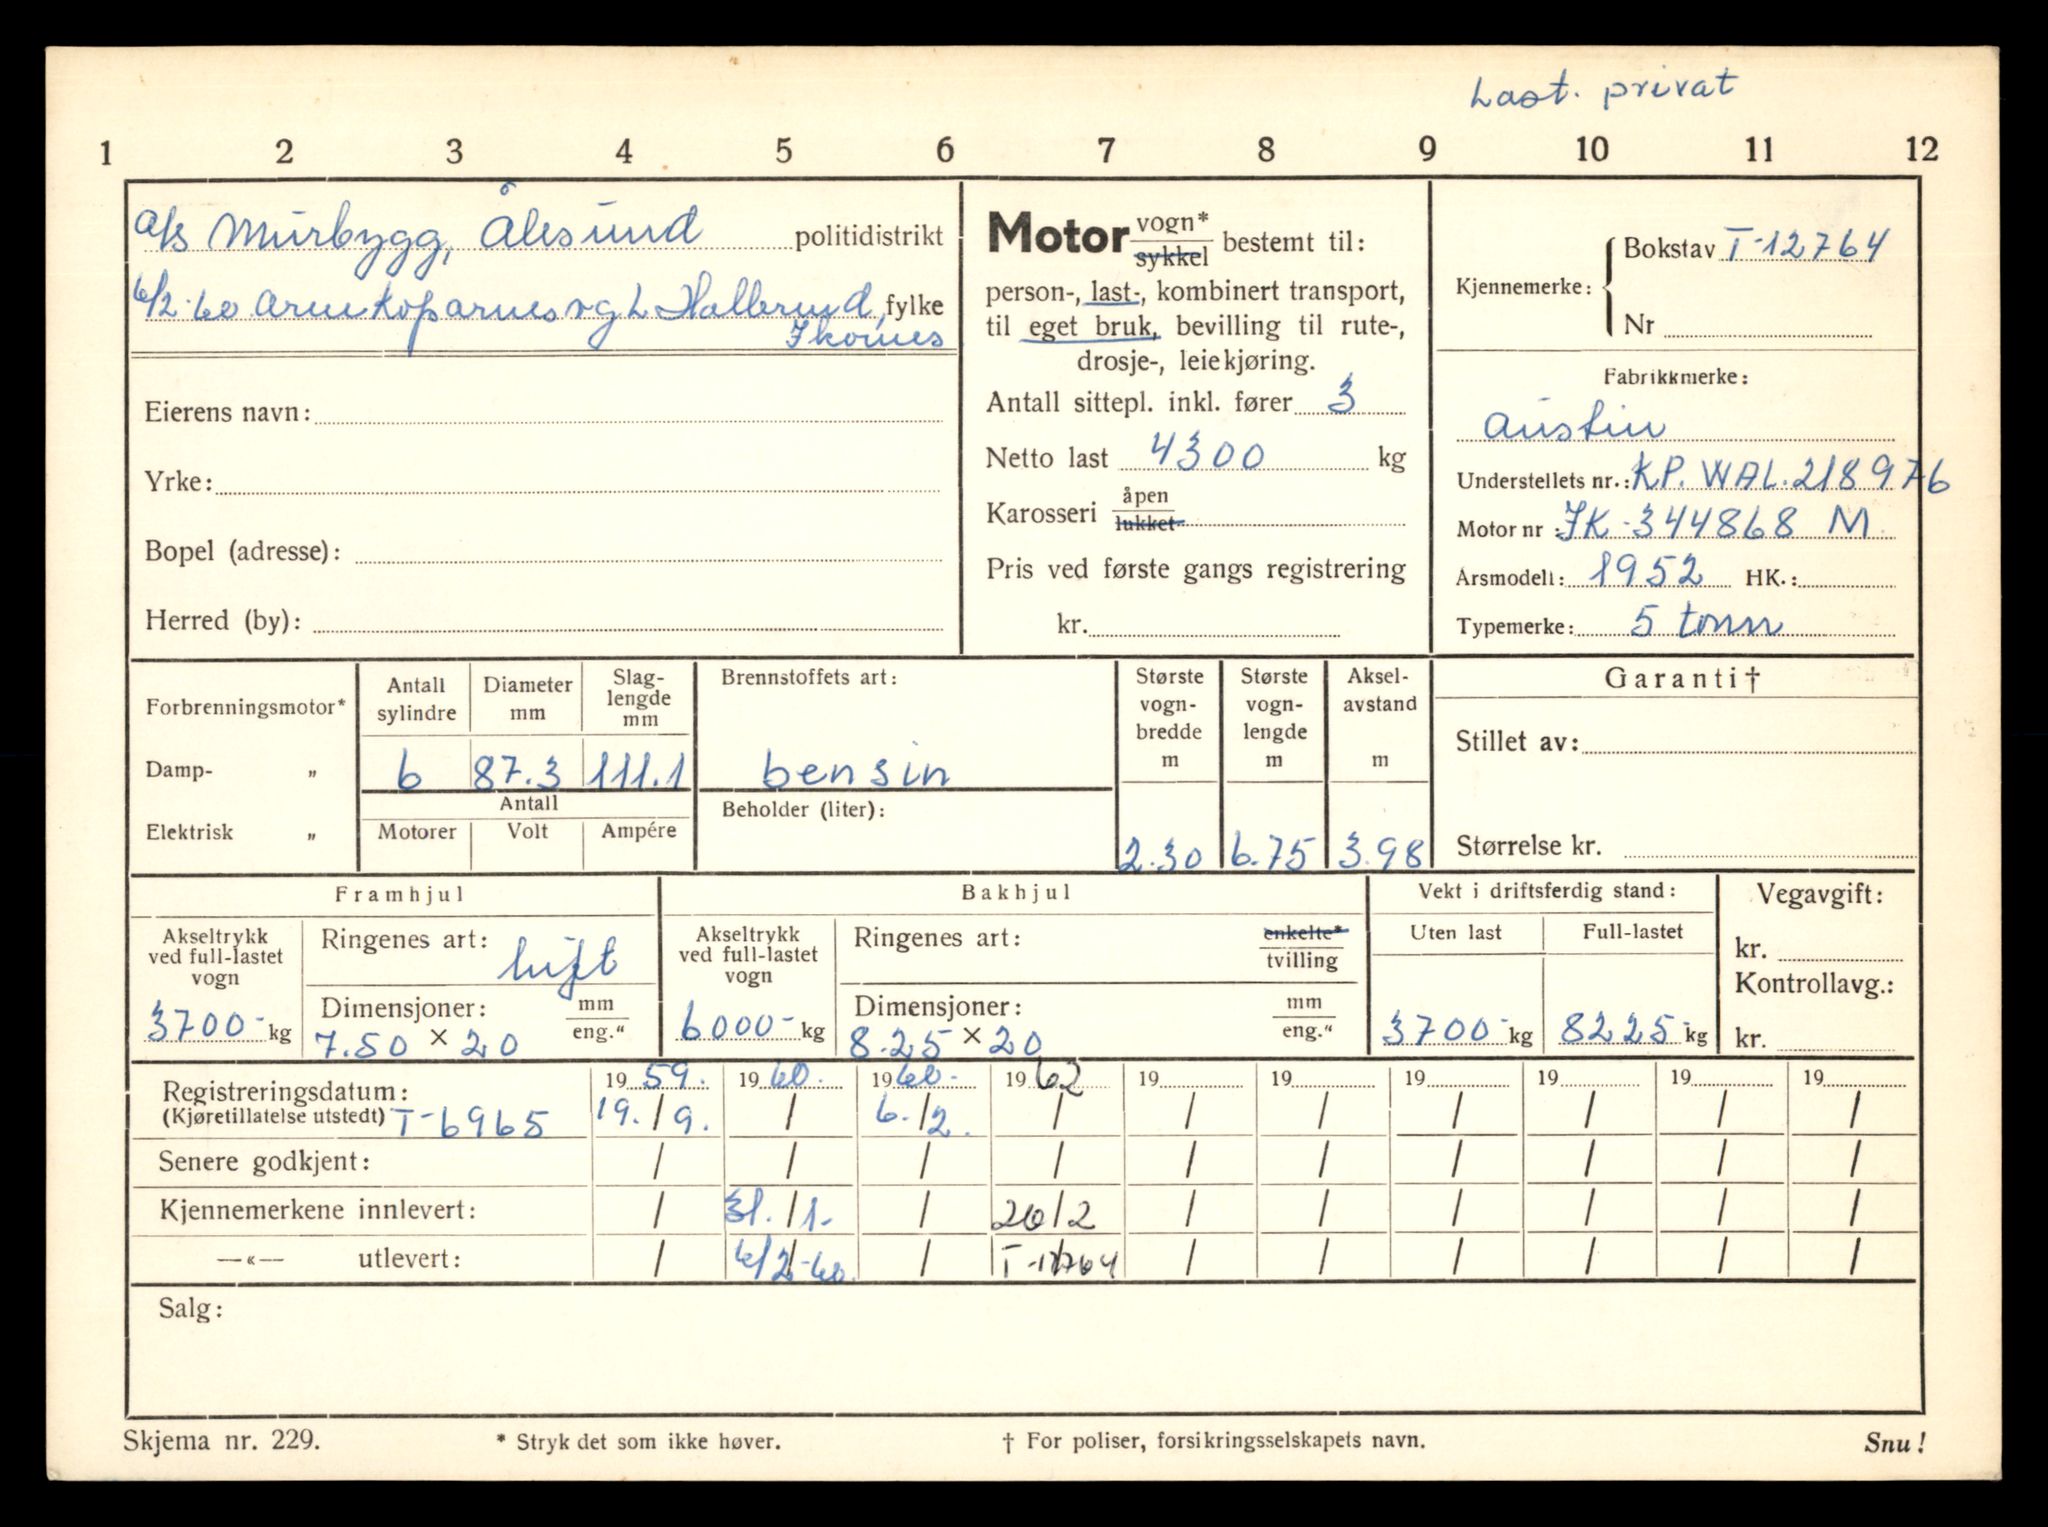 Last. privat
1 2 3 4 5 6 7 8 9 10 11 12
a/s Murbygg, Ålesund politidistrikt
6/2-60 fylke
Eierens navn:
Yrke:
Bopel (adresse):
Herred (by):
Motor vogn* / sykkel bestemt til:
person-, last-, kombinert transport,
til eget bruk, bevilling til rute-,
drosje-, leiekjøring.
Antall sittepl. inkl. fører 3
Netto last 4300 kg
Karosseri åpen / lukket
Pris ved første gangs registrering
kr.
Kjennemerke: Bokstav T-12764
Nr
Fabrikkmerke:
Austin
Understellets nr.: KP. WAL. 218976
Motor nr.: JK-344868 M
Årsmodell: 1952 HK.:
Typemerke: 5 tonn
Forbrenningsmotor*
Damp- „
Elektrisk „
Antall sylindre
Diameter mm
Slaglengde mm
6 87.3 111.1
Antall
Motorer Volt Ampére
Brennstoffets art:
bensin
Beholder (liter):
Største vogn-bredde m
2.30
Største vogn-lengde m
6.75
Aksel-avstand m
3.98
Garanti†
Stillet av:
Størrelse kr.
Framhjul
Akseltrykk ved full-lastet vogn
3700- kg
Ringenes art: luft
Dimensjoner: mm / eng."
7.50 × 20
Bakhjul
Akseltrykk ved full-lastet vogn
6000- kg
Ringenes art: enkelte* / tvilling
Dimensjoner: mm / eng."
8.25 × 20
Vekt i driftsferdig stand:
Uten last Full-lastet
3700- kg 8225- kg
Vegavgift:
kr.
Kontrollavg.:
kr.
Registreringsdatum: 1959. 1960. 1960. 1962 19 19 19 19 19 19
(Kjøretillatelse utstedt) T-6965 19./9. / 6./2. / / / / / / /
Senere godkjent: / / / / / / / / / /
Kjennemerkene innlevert: / 31./1- / 26/2 / / / / / /
—«— utlevert: / 6/2-60. / T-12764 / / / / / /
Salg:
Skjema nr. 229. * Stryk det som ikke høver. † For poliser, forsikringsselskapets navn. Snu!